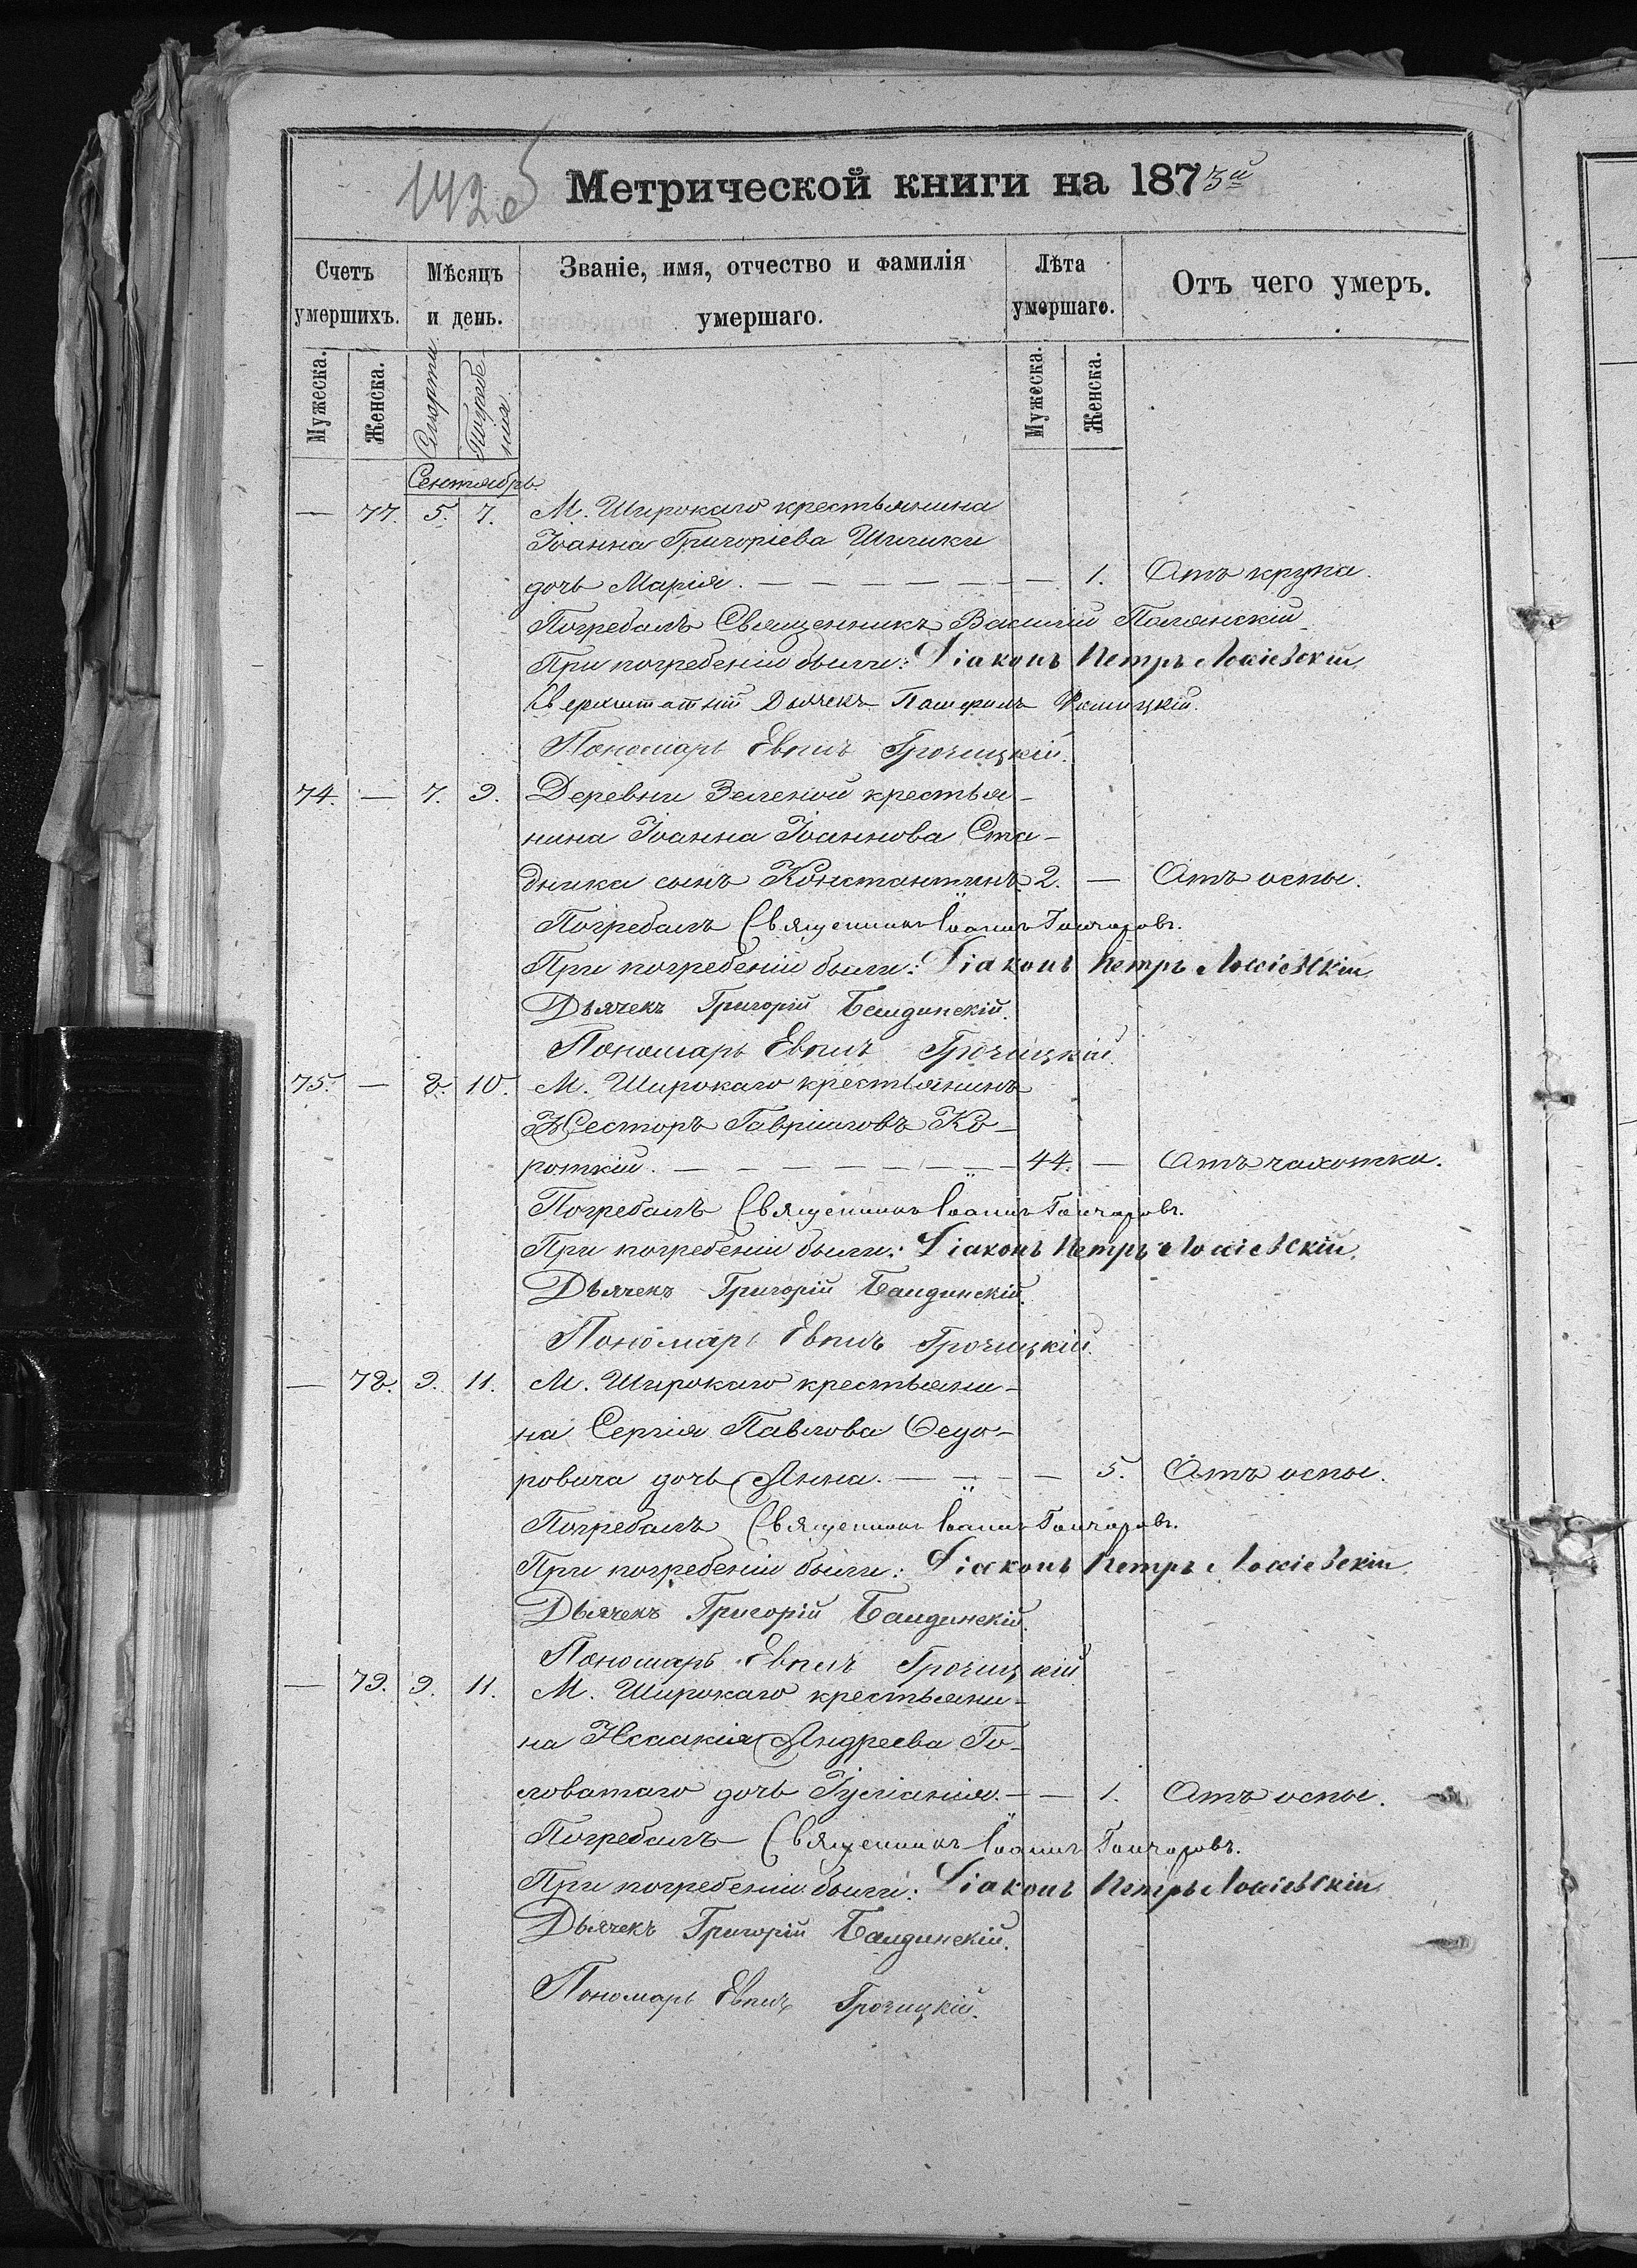 142об
Метрической книги на 1873й
Счетъ умершихъ. Мѣсяцъ и день. Званіе, имя, отчество и фамилія умершаго. Лѣта умершаго. Отъ чего умеръ.
Мужеска. Женска. Смерти Погребенія Мужеска. Женска.
Сентябрь.
— 77. 5. 7. М. Широкаго крестьянина
Іоанна Григоріева Шишки
дочь Марія. — — — — — — 1. Отъ крупа.
Погребалъ Священникъ Василій Полянскій
При погребеніи были: Діаконъ Петръ
Сверхштатній Дьячекъ
Пономарь Грозицкій.
74. — 7. 9. Деревни Зеленой крестья-
нина Іоанна Іоаннова Ста-
дника сынъ Константинъ 2. — Отъ оспы.
Погребалъ Священникъ Іоаннъ Гончаровъ.
При погребеніи были: Діаконъ Петръ
Дьячекъ Григорій Бандинскій.
Пономарь Грозицкій.
75. — 8. 10. М. Широкаго крестьянинъ
Несторъ Гавріиловъ Ко-
роткій. — — — — — — — 44. — Отъ чахотки.
Погребалъ Священникъ Іоаннъ Гончаровъ.
При погребеніи были: Діаконъ Петръ
Дьячекъ Григорій Бандинскій.
Пономарь Грозицкій.
— 78. 9. 11. М. Широкаго крестьяни-
на Сергія Павлова Ѳедо-
ровича дочь Анна. — — — — 5. Отъ оспы.
Погребалъ Священникъ Іоаннъ Гончаровъ.
При погребеніи были: Діаконъ Петръ
Дьячекъ Григорій Бандинскій.
Пономарь Грозицкій
— 79. 9. 11. М. Широкаго крестьяни-
на Исаакія Андреева Го-
ловатаго дочь Іуліанія. — — 1. Отъ оспы.
Погребалъ Священникъ Іоаннъ Гончаровъ.
При погребеніи были: Діаконъ Петръ
Дьячекъ Григорій Бандинскій.
Пономарь Грозицкій.